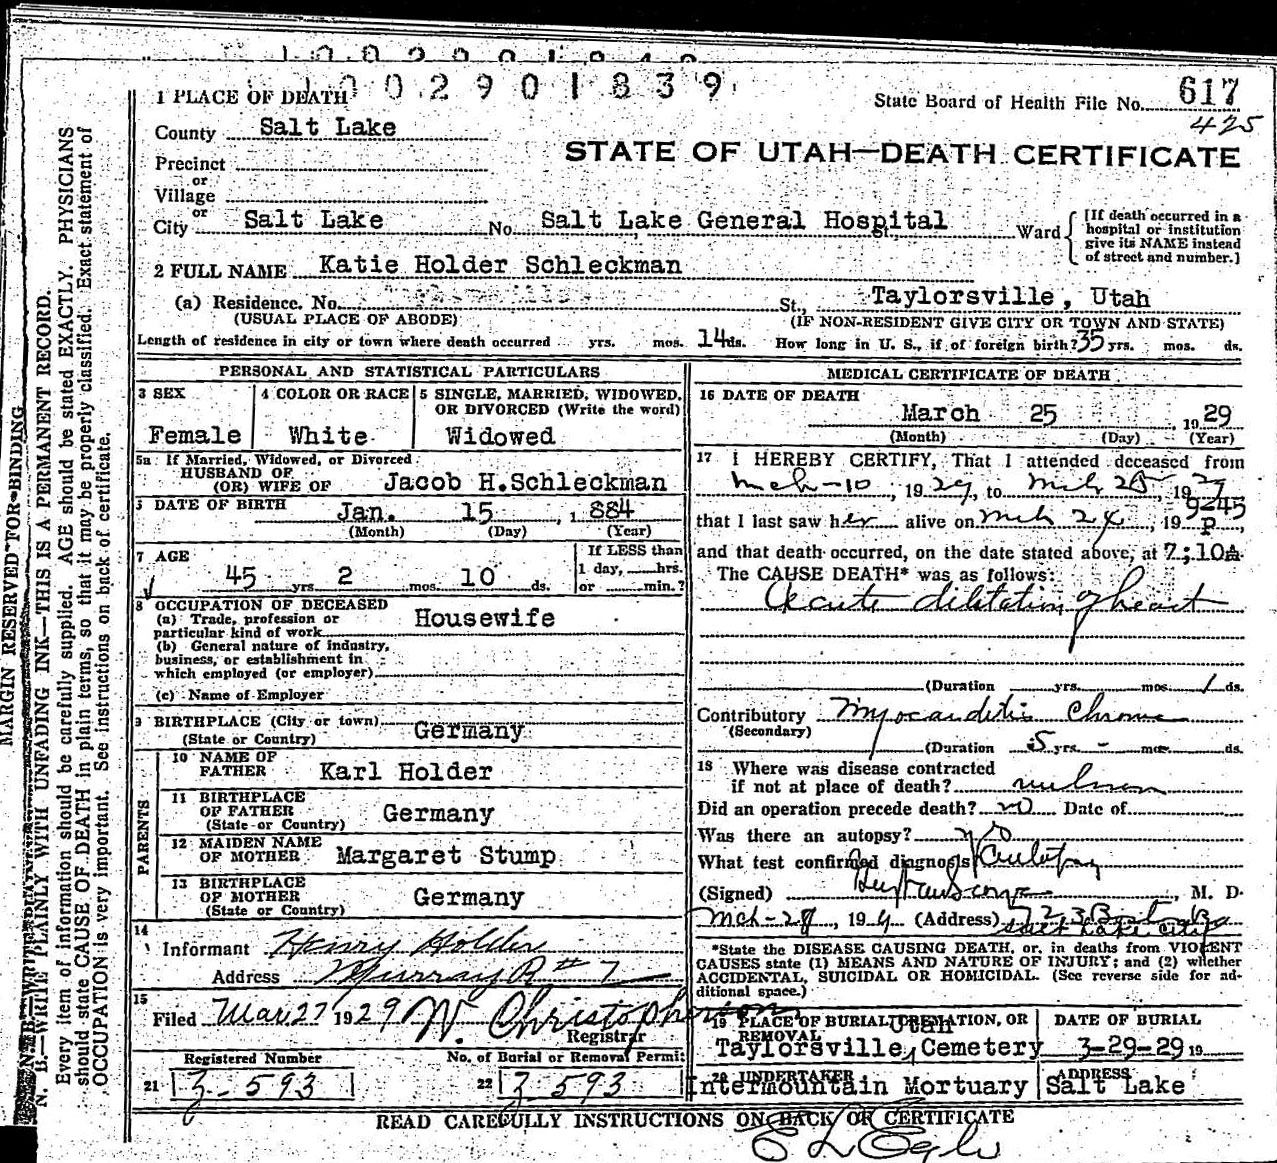 1002901839
1 PLACE OF DEATH
State Board of Health File No. 617
425
County Salt Lake
STATE OF UTAH—DEATH CERTIFICATE
Precinct
or
Village
or
City Salt Lake No. Salt Lake General Hospital St., Ward
[If death occurred in a
hospital or institution
give its NAME instead
of street and number.]
2 FULL NAME Katie Holder Schleckman
(a) Residence. No. St., Taylorsville, Utah
(USUAL PLACE OF ABODE) (IF NON-RESIDENT GIVE CITY OR TOWN AND STATE)
Length of residence in city or town where death occurred yrs. mos. 14 ds. How long in U. S., if of foreign birth? 35 yrs. mos. ds.
PERSONAL AND STATISTICAL PARTICULARS
3 SEX
Female
4 COLOR OR RACE
White
5 SINGLE, MARRIED, WIDOWED,
OR DIVORCED (Write the word)
Widowed
5a If Married, Widowed, or Divorced
HUSBAND OF
(OR) WIFE OF Jacob H.Schleckman
DATE OF BIRTH
Jan. 15, 1884
(Month) (Day) (Year)
7 AGE
45 yrs 2 mos. 10 ds.
If LESS than
1 day, hrs.
or min.?
8 OCCUPATION OF DECEASED
(a) Trade, profession or
particular kind of work Housewife
(b) General nature of industry,
business, or establishment in
which employed (or employer)
(c) Name of Employer
9 BIRTHPLACE (City or town)
(State or Country) Germany
PARENTS
10 NAME OF
FATHER Karl Holder
11 BIRTHPLACE
OF FATHER
(State or Country) Germany
12 MAIDEN NAME
OF MOTHER Margaret Stump
13 BIRTHPLACE
OF MOTHER
(State or Country) Germany
14
Informant Henry Holder
Address Murray R # 7
15
Filed Mar 27 1929 W. Christopherson
Registrar
Registered Number
21 3-593
No. of Burial or Removal Permit
22 3-593
MEDICAL CERTIFICATE OF DEATH
16 DATE OF DEATH
March 25, 1929
(Month) (Day) (Year)
17 I HEREBY CERTIFY, That I attended deceased from
Mch-10, 1929, to Mch 25, 1929
9-45
that I last saw her alive on Mch 24, 19 P
and that death occurred, on the date stated above, at 7:10A
The CAUSE DEATH* was as follows:
Acute dilitation of heart
(Duration yrs. mos. 1 ds.
Contributory Myocarditis Chronic
(Secondary)
(Duration 5 yrs. - mos. ds.
18 Where was disease contracted
if not at place of death?
Did an operation precede death? no Date of
Was there an autopsy? no
What test confirmed diagnosis
(Signed) , M. D.
Mch-28, 192 (Address) 723 Bost
Salt Lake City
*State the DISEASE CAUSING DEATH, or, in deaths from VIOLENT
CAUSES state (1) MEANS AND NATURE OF INJURY; and (2) whether
ACCIDENTAL, SUICIDAL OR HOMICIDAL. (See reverse side for ad-
ditional space.)
19 PLACE OF BURIAL, CREMATION, OR
REMOVAL
Utah
Taylorsville, Cemetery
DATE OF BURIAL
3-29-29 19
20 UNDERTAKER
Intermountain Mortuary
ADDRESS
Salt Lake
READ CAREFULLY INSTRUCTIONS ON BACK OF CERTIFICATE
MARGIN RESERVED FOR BINDING
N. B.—WRITE PLAINLY WITH UNFADING INK—THIS IS A PERMANENT RECORD.
Every item of information should be carefully supplied. AGE should be stated EXACTLY. PHYSICIANS
should state CAUSE OF DEATH in plain terms, so that it may be properly classified. Exact statement of
OCCUPATION is very important. See instructions on back of certificate.